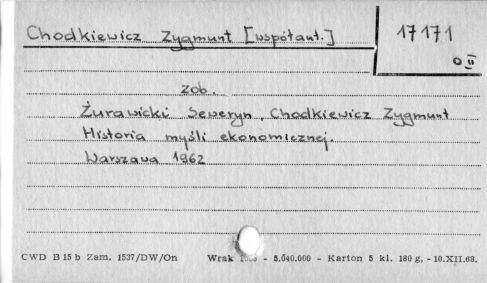 Chodkiewicz Zygmunt [współaut.]
17171
zob.
Żurawicki Seweryn, Chodkiewicz Zygmunt
Historia myśli ekonomicznej.
Warszawa 1962
CWD B 15 b Zam. 1537/DW/On Wrak - 5.040.000 - Karton 5 kl. 180 g. - 10.XII.68.